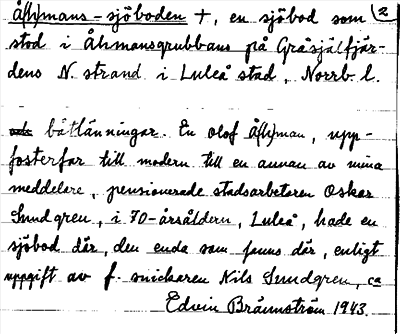 Å(h)mans-sjöboden +, en sjöbod som (2
stod i Åhmansgrubbans på Gråsjälfjär-
dens N. strand i Luleå stad, Norrb. l.
båtlänningar. En Olof Å(h)man, upp-
fosterfar till modern till en annan av mina
meddelare, pensionerade stadsarbetaren Oskar
Sundgren, i 70-årsåldern, Luleå, hade en
sjöbod där, den enda som fanns där, enligt
uppgift av f. snickaren Nils Sundgren, ca
Edvin Brännström 1943.